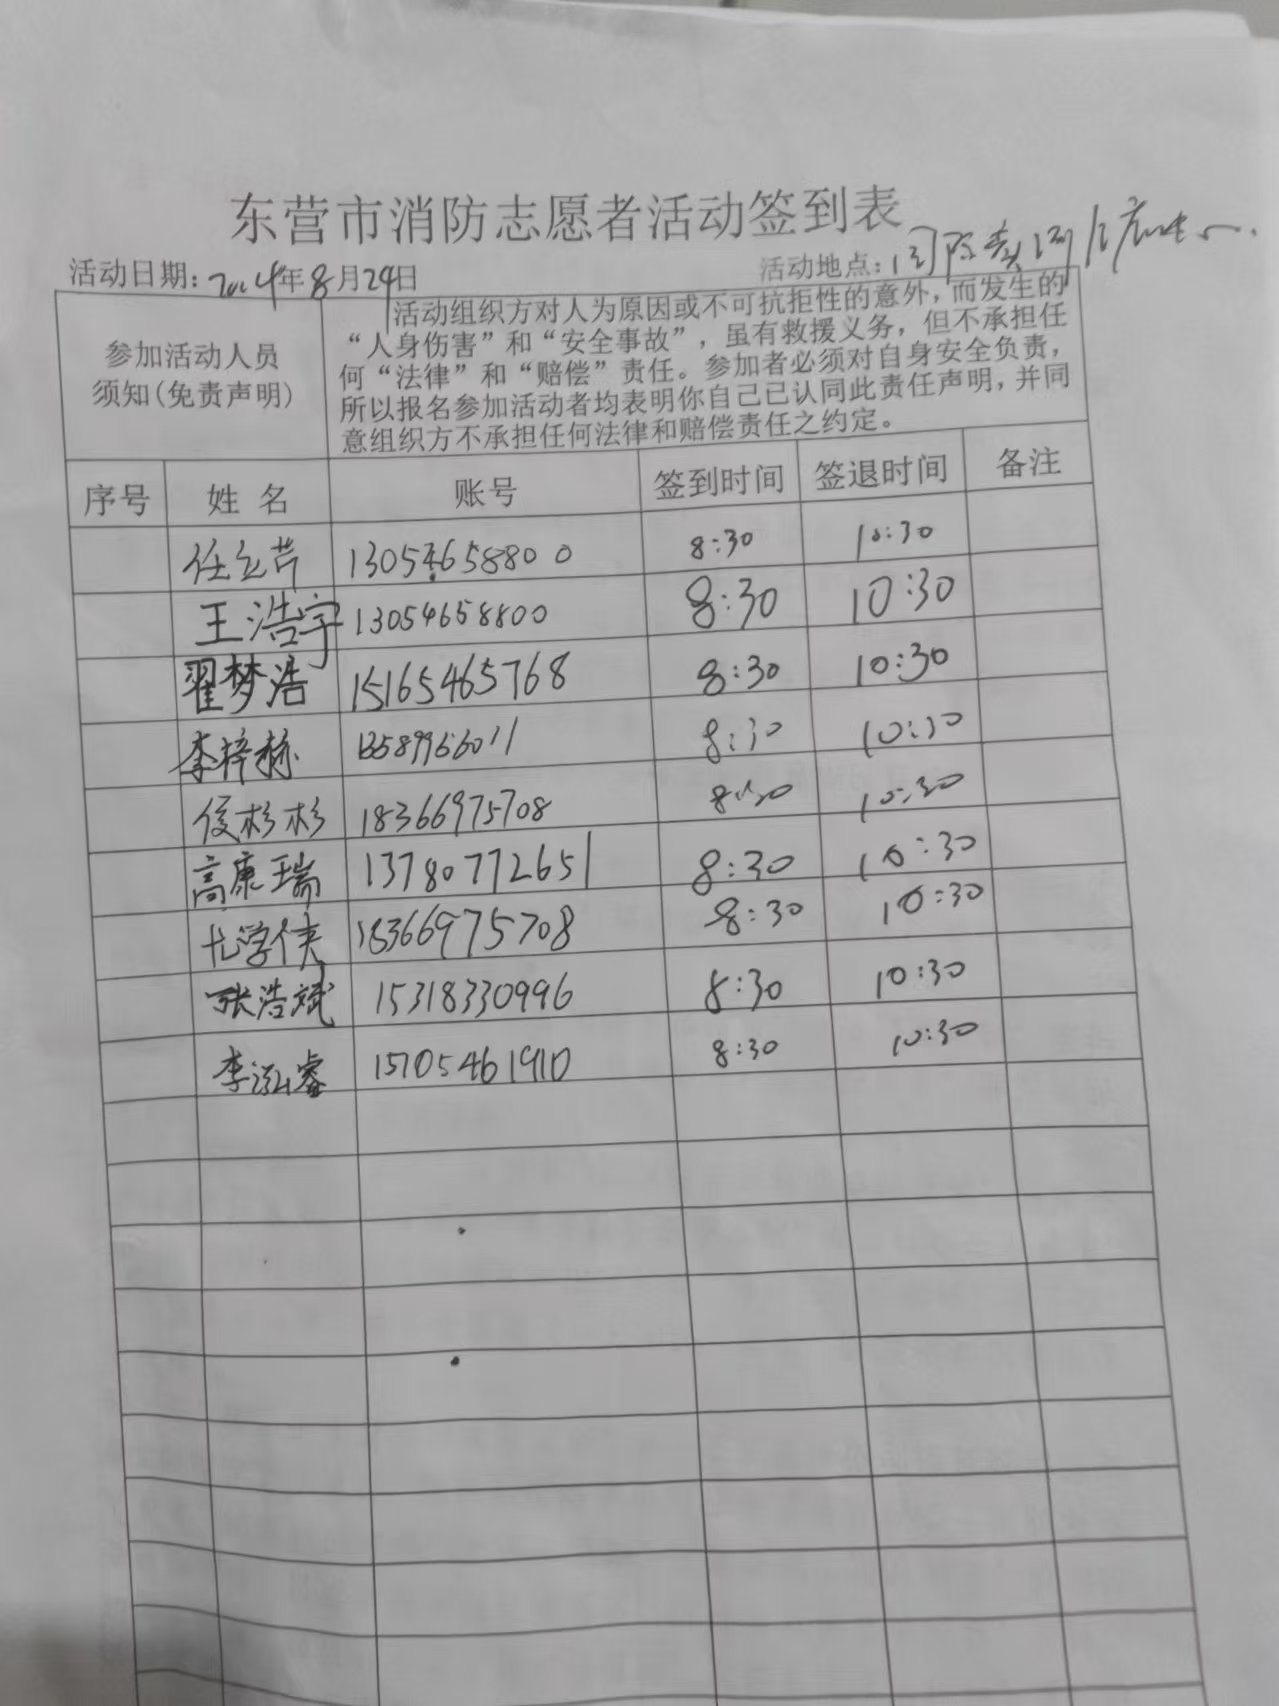 东营市消防志愿者活动签到表
活动日期: 2024年8月24日 活动地点:
参加活动人员
须知(免责声明)
活动组织方对人为原因或不可抗拒性的意外,而发生的
“人身伤害”和“安全事故”,虽有救援义务,但不承担任
何“法律”和“赔偿”责任。参加者必须对自身安全负责,
所以报名参加活动者均表明你自己已认同此责任声明,并同
意组织方不承担任何法律和赔偿责任之约定。
序号 姓 名 账号 签到时间 签退时间 备注
任立芹 13054658800 8:30 10:30
王浩宇 13054658800 8:30 10:30
翟梦浩 15165465768 8:30 10:30
李梓赫 13589966011 8:30 10:30
侯杉杉 18366975708 8:30 10:30
高康瑞 13780772651 8:30 10:30
尤学侠 18366975708 8:30 10:30
张浩斌 15318330996 8:30 10:30
李泓睿 15705461910 8:30 10:30